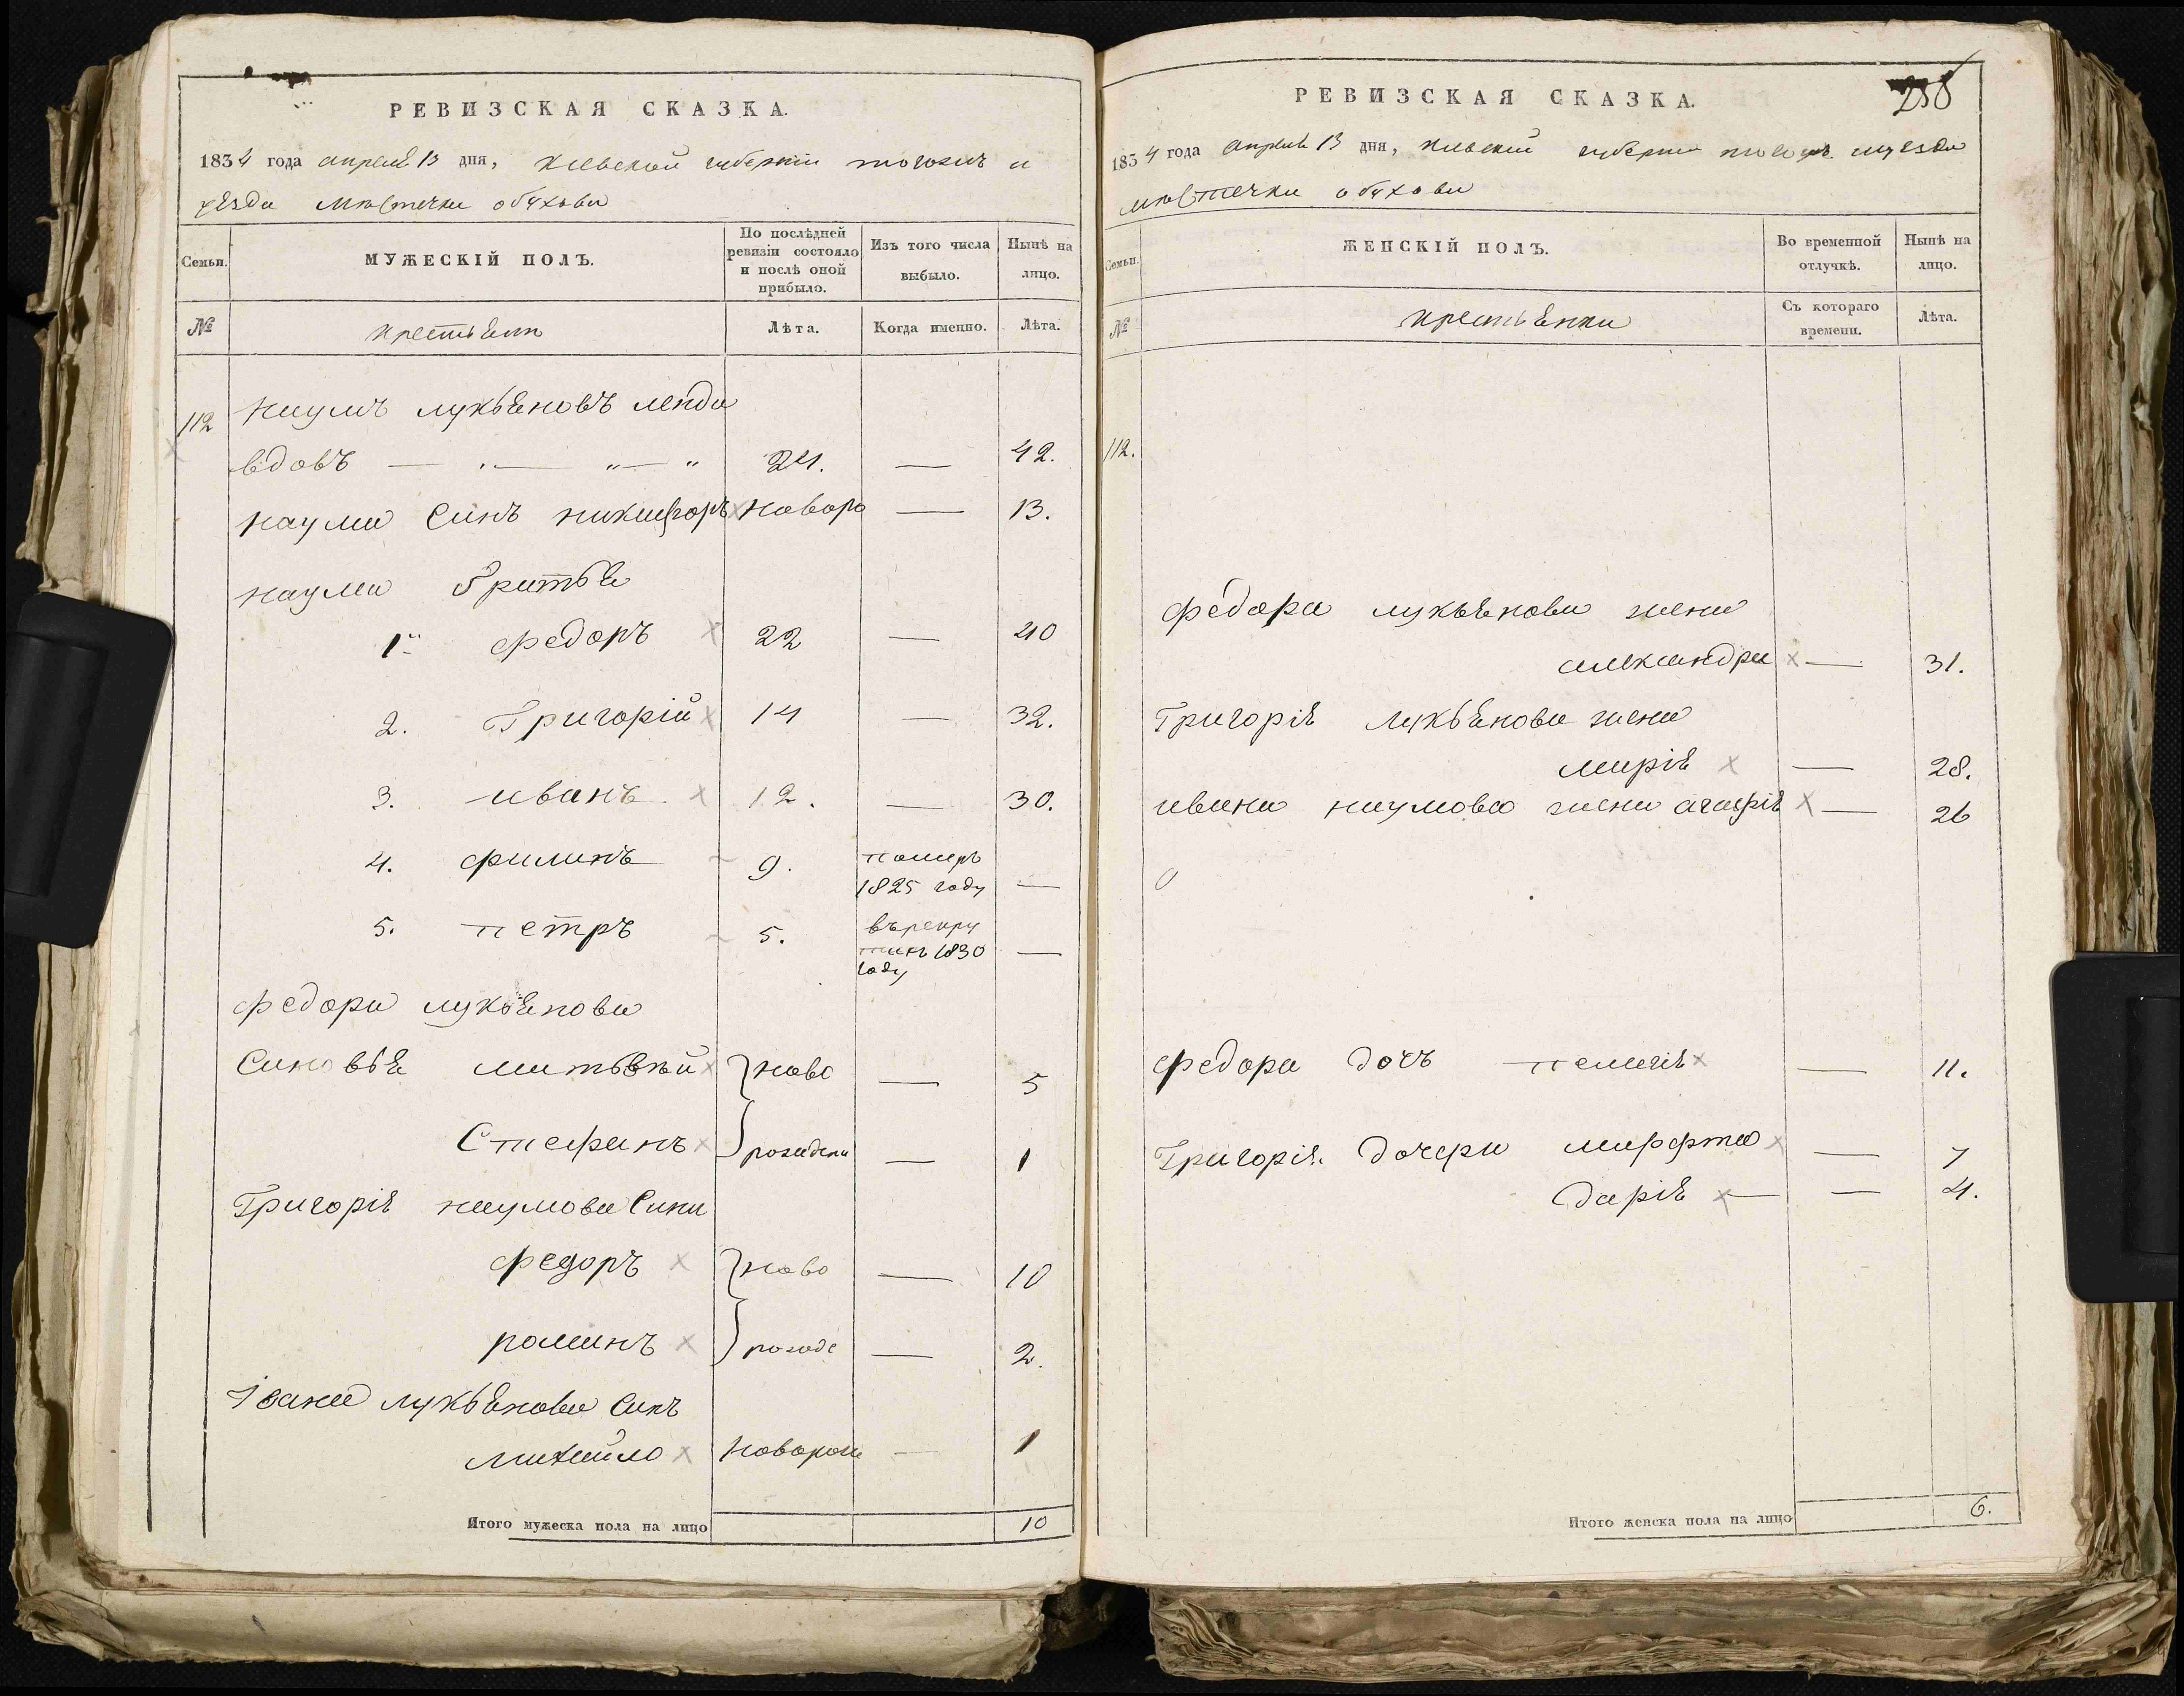 РЕВИЗСКАЯ СКАЗКА.
1834 года апреля 13 дня, Киевской губернии тогожъ и
уезда местечка обухова
Семьи.
МУЖЕСКІЙ ПОЛЪ.
По послѣдней ревизіи состояло и послѣ оной прибыло.
Изъ того числа выбыло.
Нынѣ на лицо.
№
крестьяне
Лѣта.
Когда именно.
Лѣта.
112 наумъ лукьяновъ
вдовъ — . — „ — „ 24. — 42.
наума синъ никифоръ новоро — 13.
наума братья
1й федоръ 22 — 40
2. Григорій 14 — 32.
3. иванъ 12. — 30.
4. филипъ 9. померъ 1825 году —
5. петръ 5. въ рекру тахъ 1830 году —
федора лукьянова
Синовья матвѣй ново — 5
Стефанъ рождени — 1
Григорія наумова Сини
федоръ ново — 10
романъ рожде — 2.
Івана лукьянова Синъ
михайло новорож — 1
Итого мужеска пола на лицо 10
РЕВИЗСКАЯ СКАЗКА.
238
1834 года апреля 13 дня, киевской губернии тогожъ иуезда
местечка обухова
Семьи.
ЖЕНСКІЙ ПОЛЪ.
Во временной отлучкѣ.
Нынѣ на лицо.
№
крестьянки
Съ котораго времени.
Лѣта.
112.
федора лукьянова жена
александра — 31.
Григорія лукьянова жена
марія — 28.
ивана наумова жена агафія — 26
федора дочъ пелагія — 11.
Григорія дочери марфта — 7
дарія — — 4.
Итого женска пола на лицо 6.